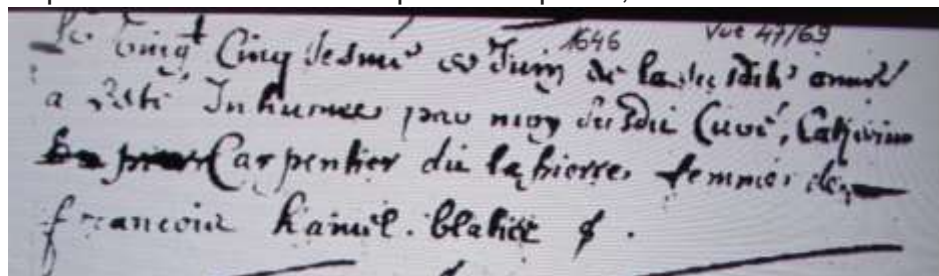 1646 Vue 47/69
le Vingt Cinq de Juin de la susdite année
a esté Inhumee par moy susdit Curé, Catherine
Carpentier du femme de
francois hamel.